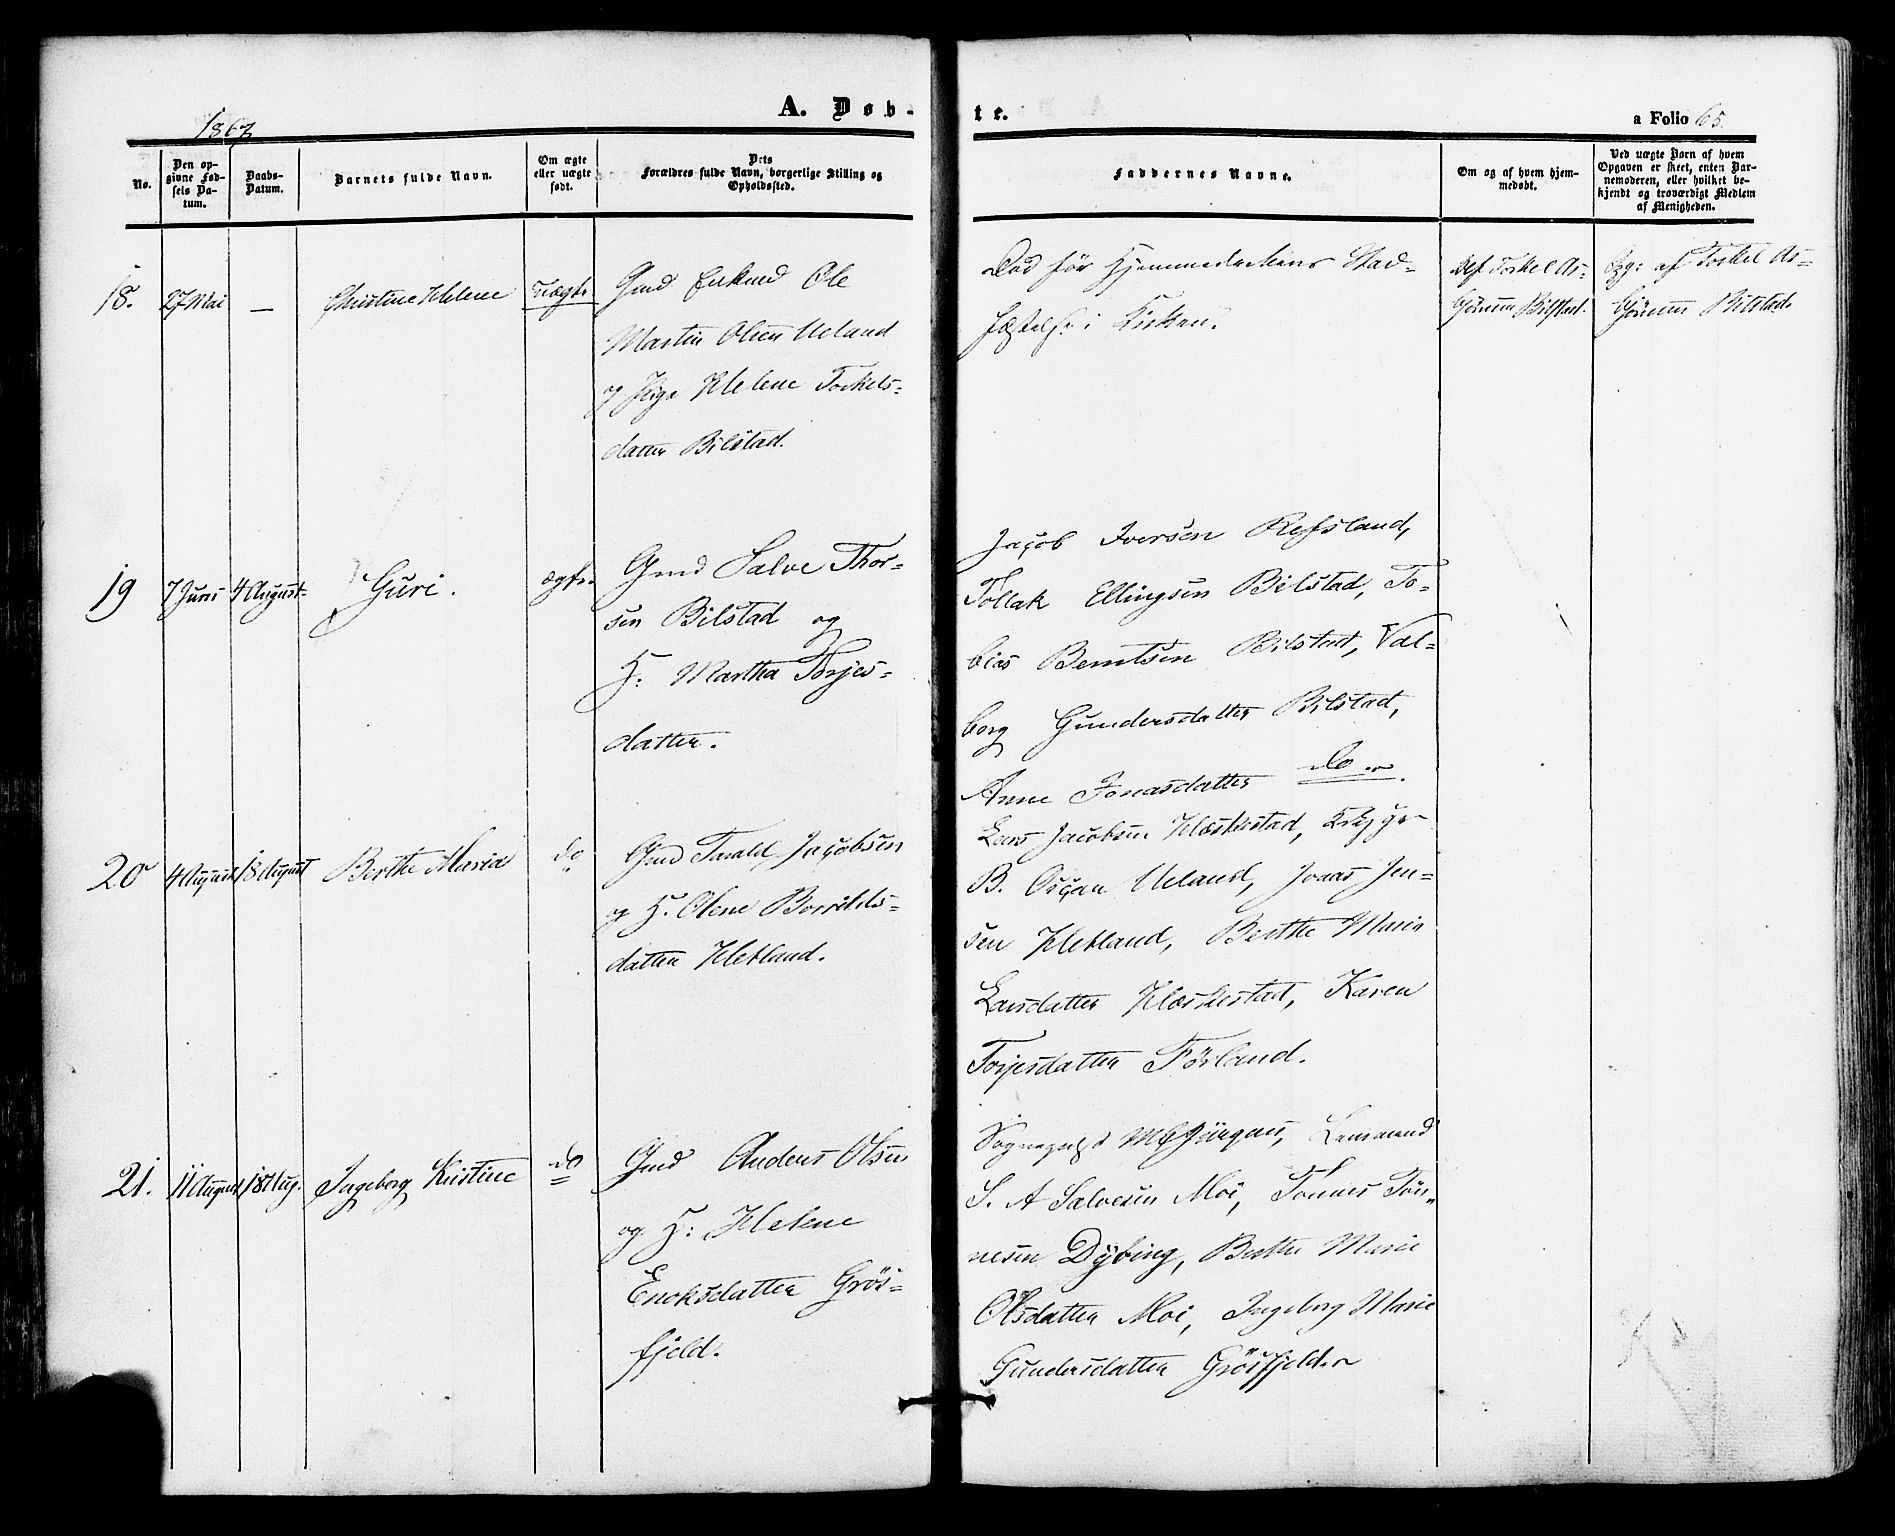 1867
A. Døb-
te.
a Folio 65.
No.
Den op-
givne Fød-
sels Da-
tum.
Daabs-
Datum.
Barnets fulde Navn.
Om ægte
eller uægte
født.
Dets
Forældres fulde Navn, borgerlige Stilling og
Opholdssted.
Faddernes Navne.
Om og af hvem hjem-
medøbt.
Ved uægte Børn af hvem
Opgaven er skeet, enten Bar-
nemoderen, eller hvilket be-
kjendt og troværdigt Medlem
af Menigheden.
18.
27 Mai
—
Christine Helene
uægte
Gmd Enkmd Ole
Martin Olsen Ueland
og Pige Helene Torkels-
datter Bilstad.
Død før Hjemmedaabens Stad-
fæstelse i Kirken.
Af Torkel As-
bjørnsen Bilstad.
Opg: af Torkel As-
bjørnsen Bilstad
19
7 Juni
4 August
Guri.
ægte
Gmd Salve Thor-
sen Bilstad og
H. Martha Torjes-
datter.
Jacob Iversen Refsland,
Tollak Ellingsen Bilstad, To-
bias Berntsen Bilstad, Val-
borg Gundersdatter Bilstad,
Anne Jonasdatter do
20
4 August
18 August
Berthe Maria
do
Gmd Tarald Jacobsen
og H. Olene Borrilds-
datter Hetland.
Lars Jacobsen Hæskestad,
B. Oscar Ueland, Jonas Jen-
sen Hetland, Berthe Marie
Larsdatter Hæskestad, Karen
Torjesdatter Førland.
21.
11 August
18 Aug.
Ingeborg Kristine
do
Gmd Anders Olsen
og H: Helene
Enoksdatter Grøs-
fjeld.
Sognepræst Lensmand
S. A Salvesen Moi, Tønnes Tøn-
nesen Dybing, Berthe Marie
Olsdatter Moi, Ingeborg Marie
Gundersdatter Grøsfjeld